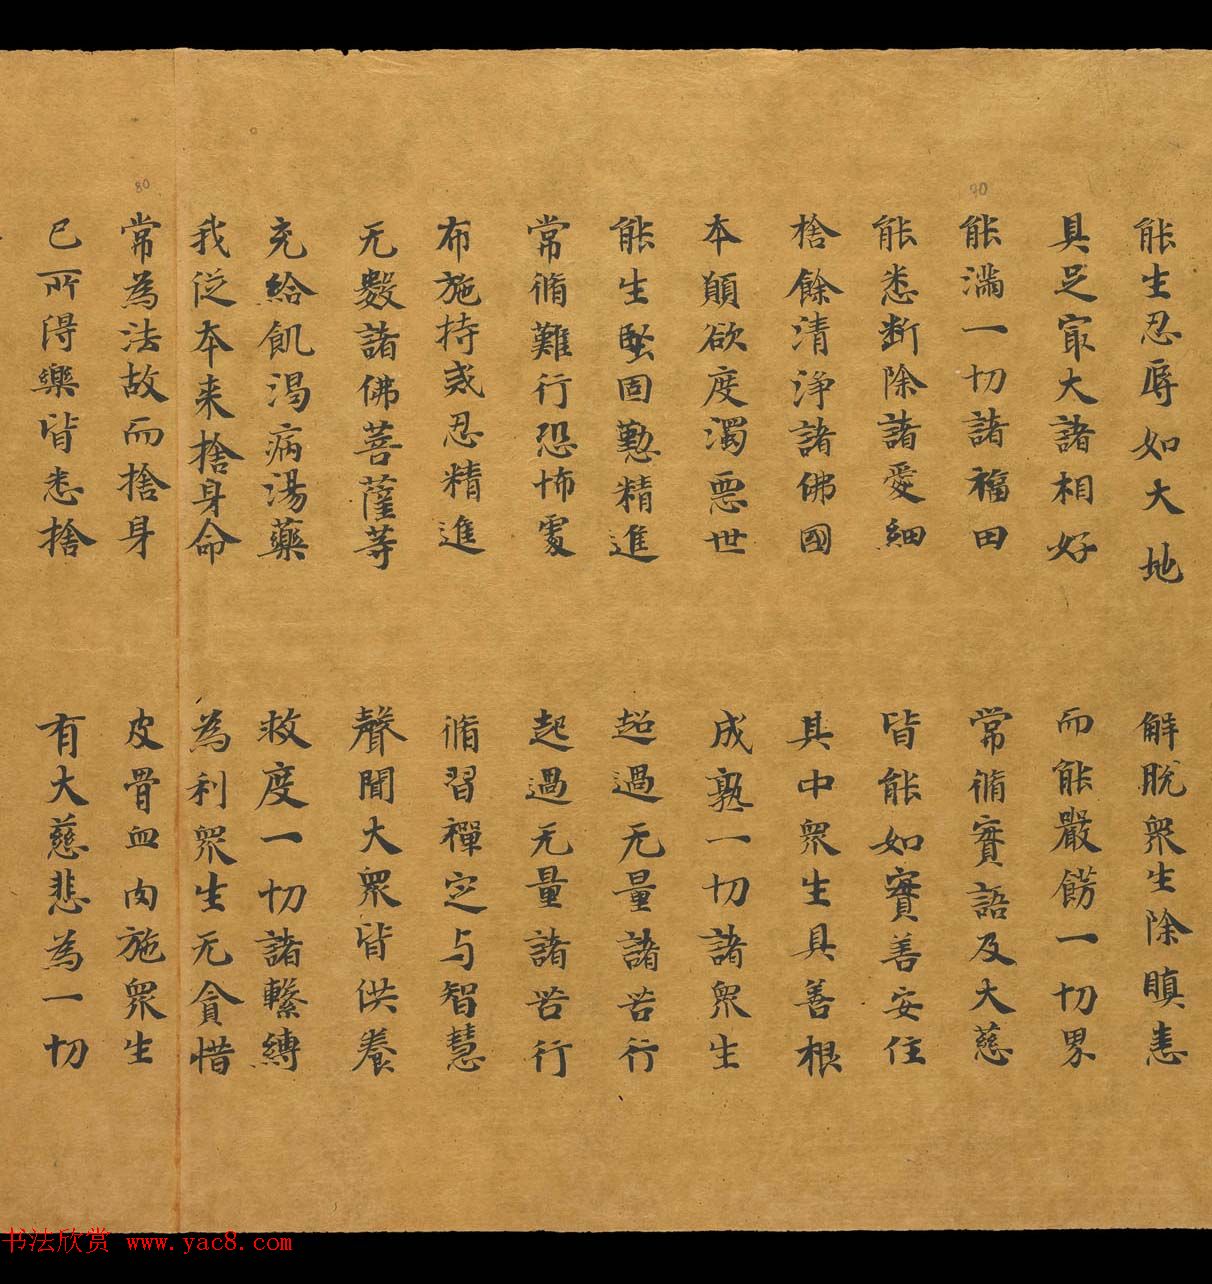 能生忍辱如大地 解脫眾生除瞋恚
具足㝡大諸相好 而能嚴餝一切界
能滿一切諸福田 常脩實語及大慈
能悉断除諸愛細 皆能如實善安住
捨餘清淨諸佛國 具中眾生具善根
本願欲度濁惡世 成熟一切諸眾生
能生堅固懃精進 超過无量諸苦行
常脩難行恐怖處 起過无量諸苦行
布施持戒忍精進 脩習禪定与智慧
无數諸佛菩薩等 聲聞大眾皆供養
充給飢渴病湯藥 救度一切諸繫縛
我従本来捨身命 為利眾生无貪惜
常為法故而捨身 皮骨血肉施眾生
已所得樂皆悉捨 有大慈悲為一切
70
80
书法欣赏 www.yac8.com